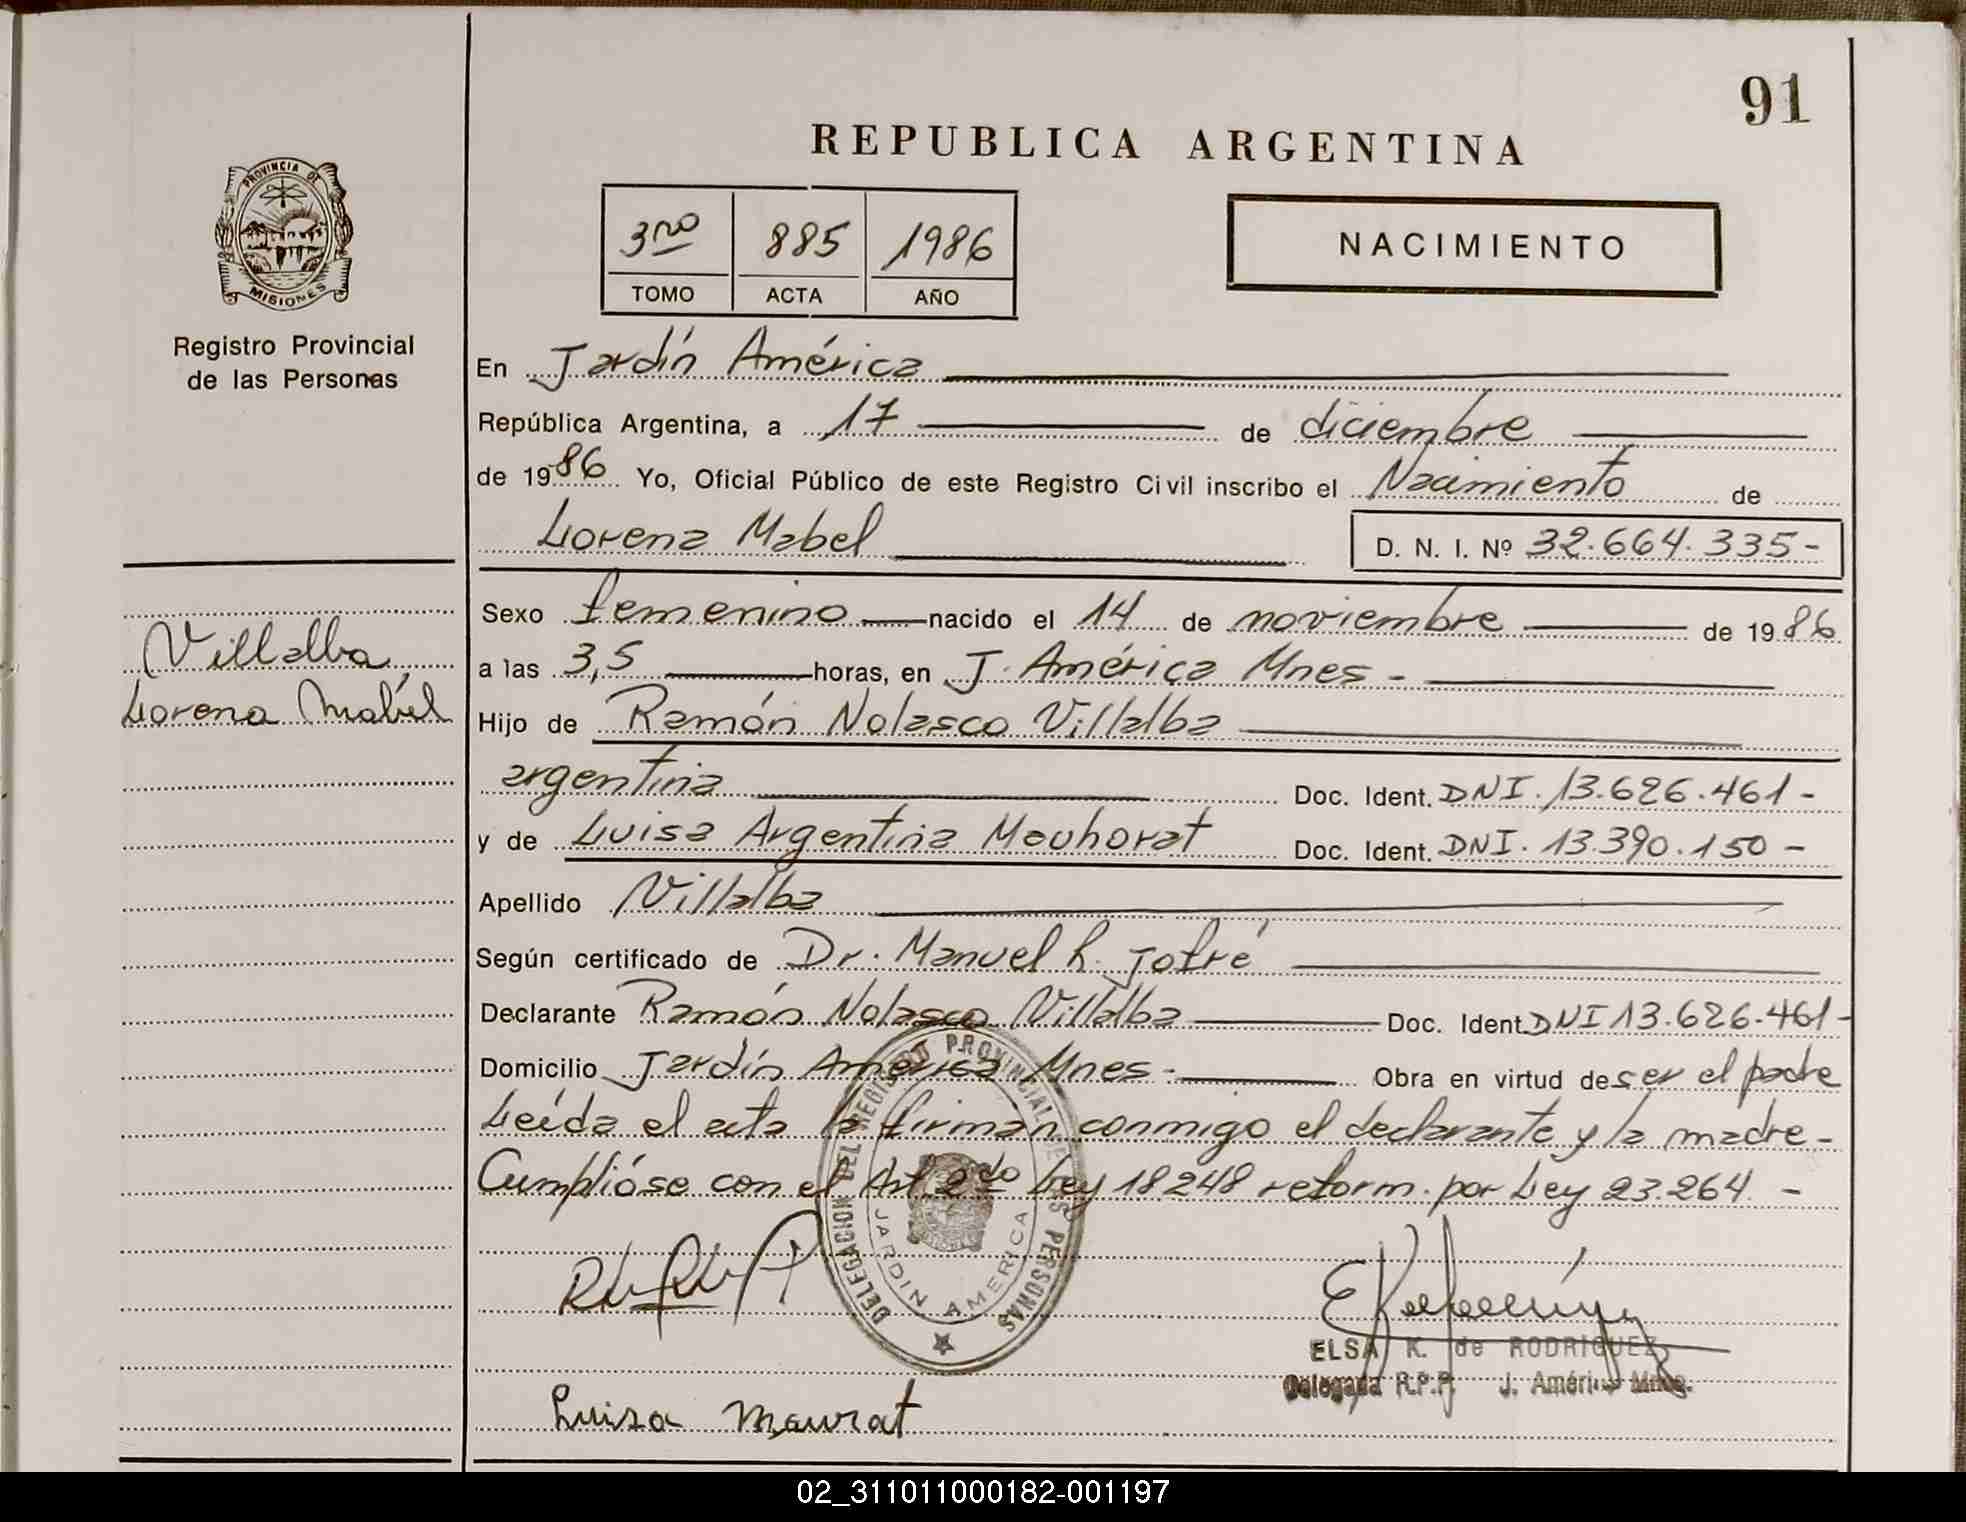 91
REPUBLICA ARGENTINA
PROVINCIA DE
MISIONES
Registro Provincial
de las Personas
3ro 885 1986
TOMO ACTA AÑO
NACIMIENTO
En Jardín América
República Argentina, a 17 de diciembre
de 1986 Yo, Oficial Público de este Registro Civil inscribo el Nacimiento de
Lorena Mabel D. N. I. Nº 32.664.335-
Villalba
Lorena Mabel
Sexo femenino nacido el 14 de noviembre de 1986
a las 3,5 horas, en J. América Mnes -
Hijo de Ramón Nolasco Villalba
argentina Doc. Ident. DNI. 13.626.461-
y de Luisa Argentina Mouhorat Doc. Ident. DNI. 13.390.150 -
Apellido Villalba
Según certificado de Dr. Manuel R. Jofré
Declarante Ramón Nolasco Villalba Doc. Ident DNI 13.626.461-
Domicilio Jardín América Mnes - Obra en virtud de ser el padre
Leída el acta la firman conmigo el declarante y la madre -
Cumplióse con el Art 2do Ley 18.248 reform. por Ley 23.264 -
DELEGACION DEL REGISTRO PROVINCIAL DE LAS PERSONAS
JARDIN AMERICA
ELSA K. de RODRIGUEZ
Delegada R.P.P. J. América Mnes.
Luisa Maurat
02_311011000182-001197